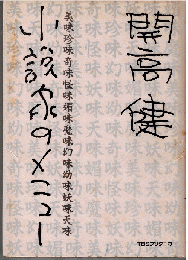 開高健
美味珍味奇味怪味媚味魔味幻味幼味妖味天味
小説家のメニュー
TBSブリタニカ